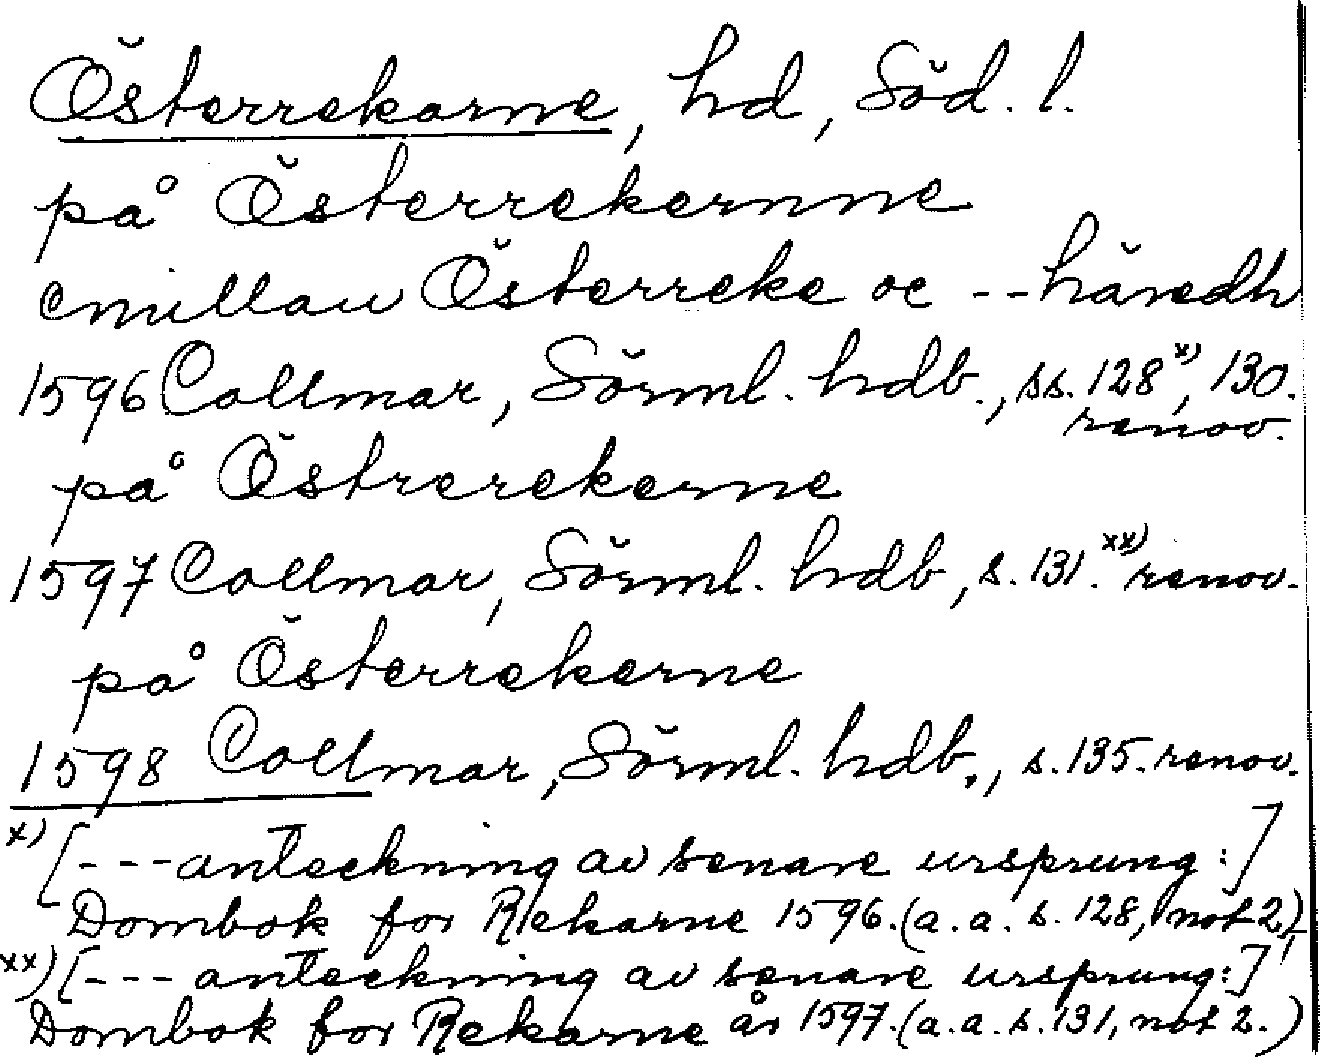 Österrekarne, hd, Söd. l.
på Österrekernne
emillan Österreke oc -- häredh
1596 Collmar, Sörml. hdb., ss. 128x), 130.
renov.
på Östrerekerne
1597 Collmar, Sörml. hdb, s. 131.xx) renov.
på Österrekerne
1598 Collmar, Sörml. hdb., s. 135. renov.
x) [--- anteckning av senare ursprung:]
Dombok for Rekarne 1596. (a.a. s. 128, not 2)
xx) [--- anteckning av senare ursprung:]
Dombok for Rekarne år 1597. (a.a. s. 131, not 2.)